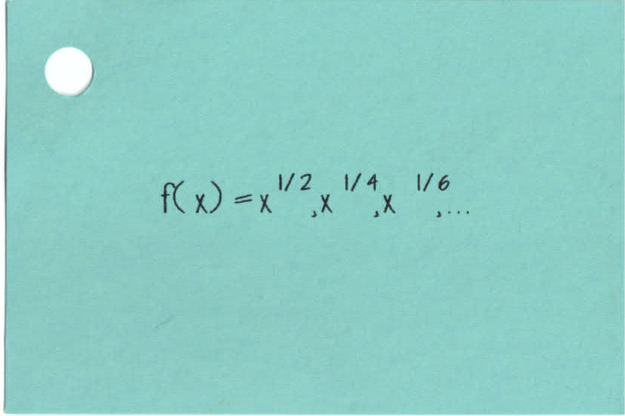 f(x) = x^1/2, x^1/4, x^1/6, ...